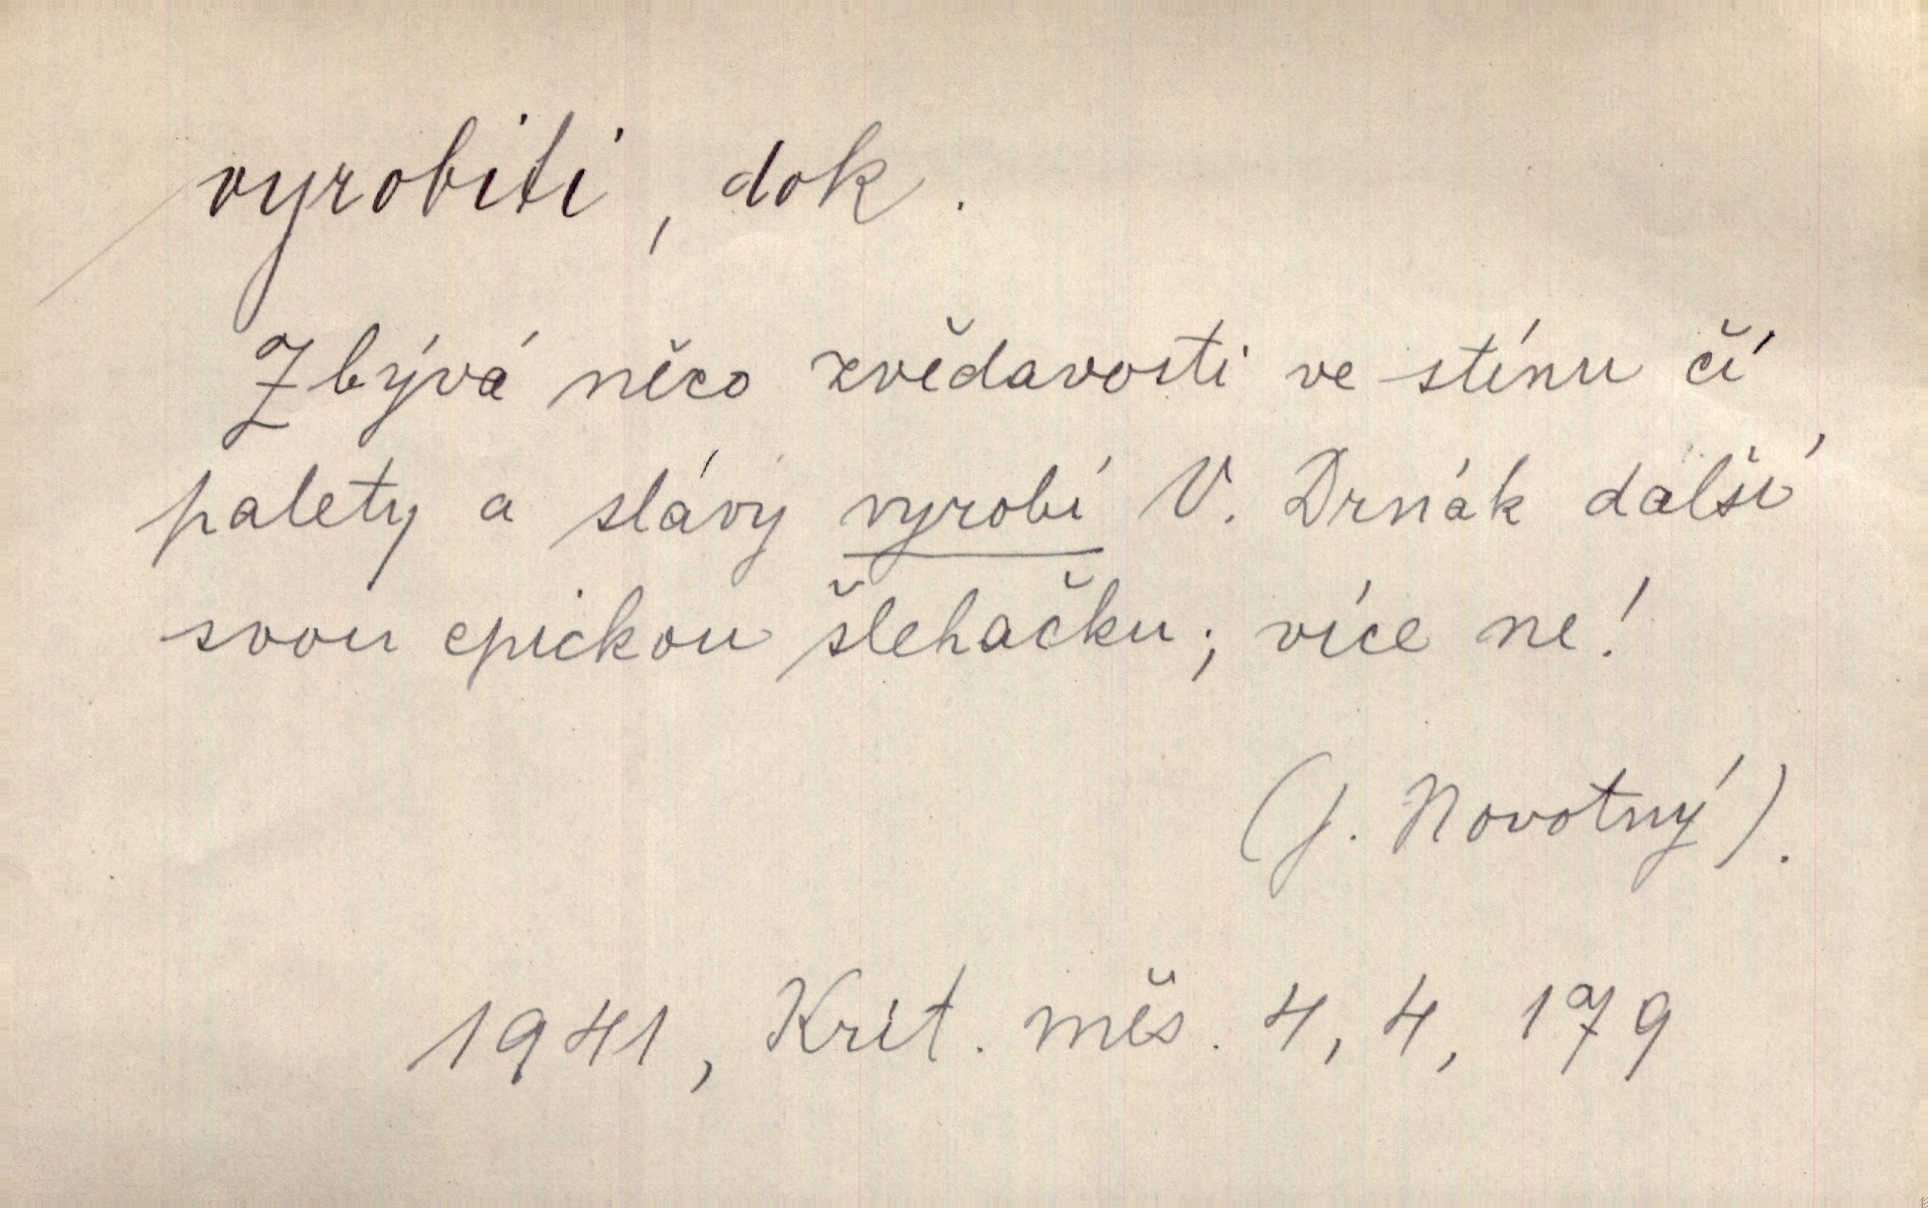 vyrobiti, dok.
Zbývá něco zvědavosti ve stínu čí
palety a slávy vyrobí V. Drnák další
svou epickou šlehačku; více ne!
(J. Novotný).
1941, Krit. měs. 4, 4, 179